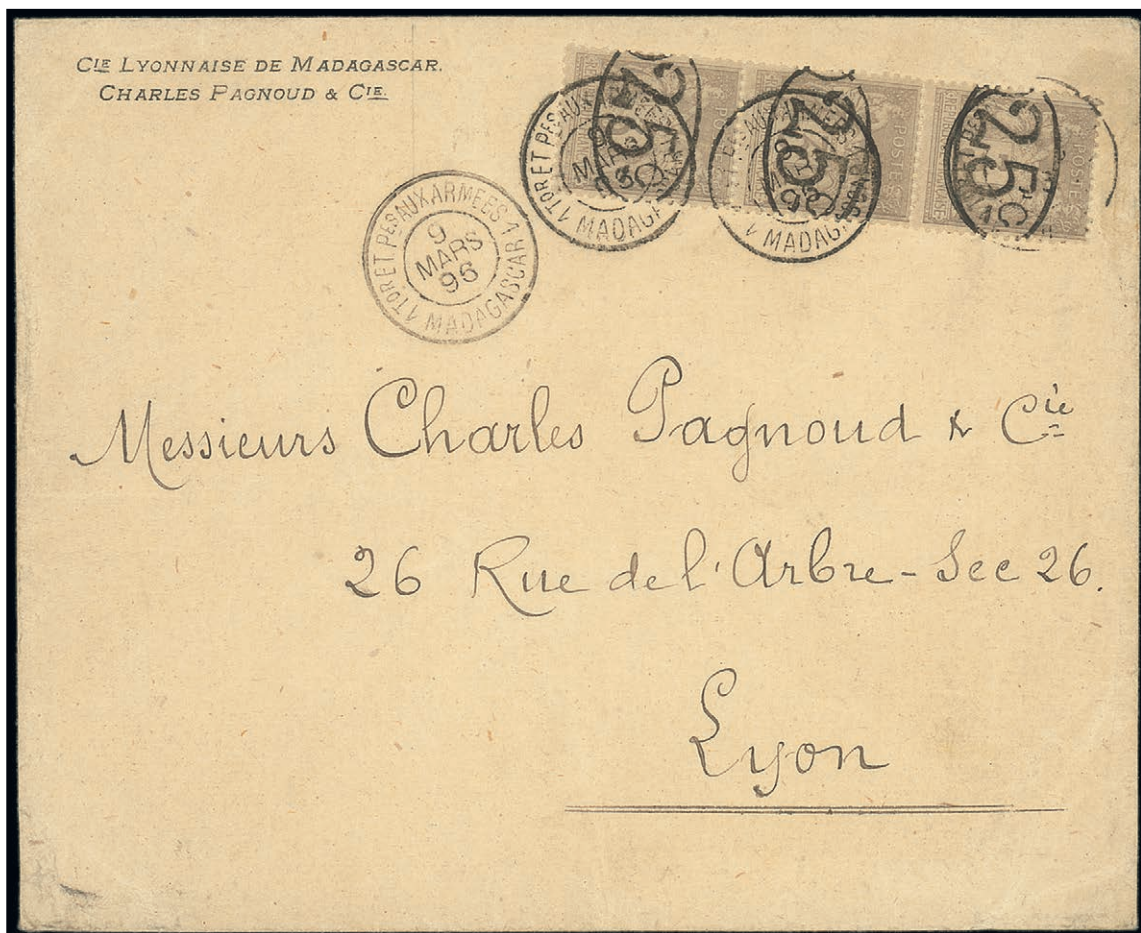 CIE LYONNAISE DE MADAGASCAR.
CHARLES PAGNOUD & CIE
25c
25c
25c
POSTES
POSTES
POSTES
1 TOR ET PES AUX ARMEES 1
9
MARS
96
1 MADAGASCAR 1
Messieurs Charles Pagnoud & Cie
26 Rue de l'Arbre-Sec 26.
Lyon